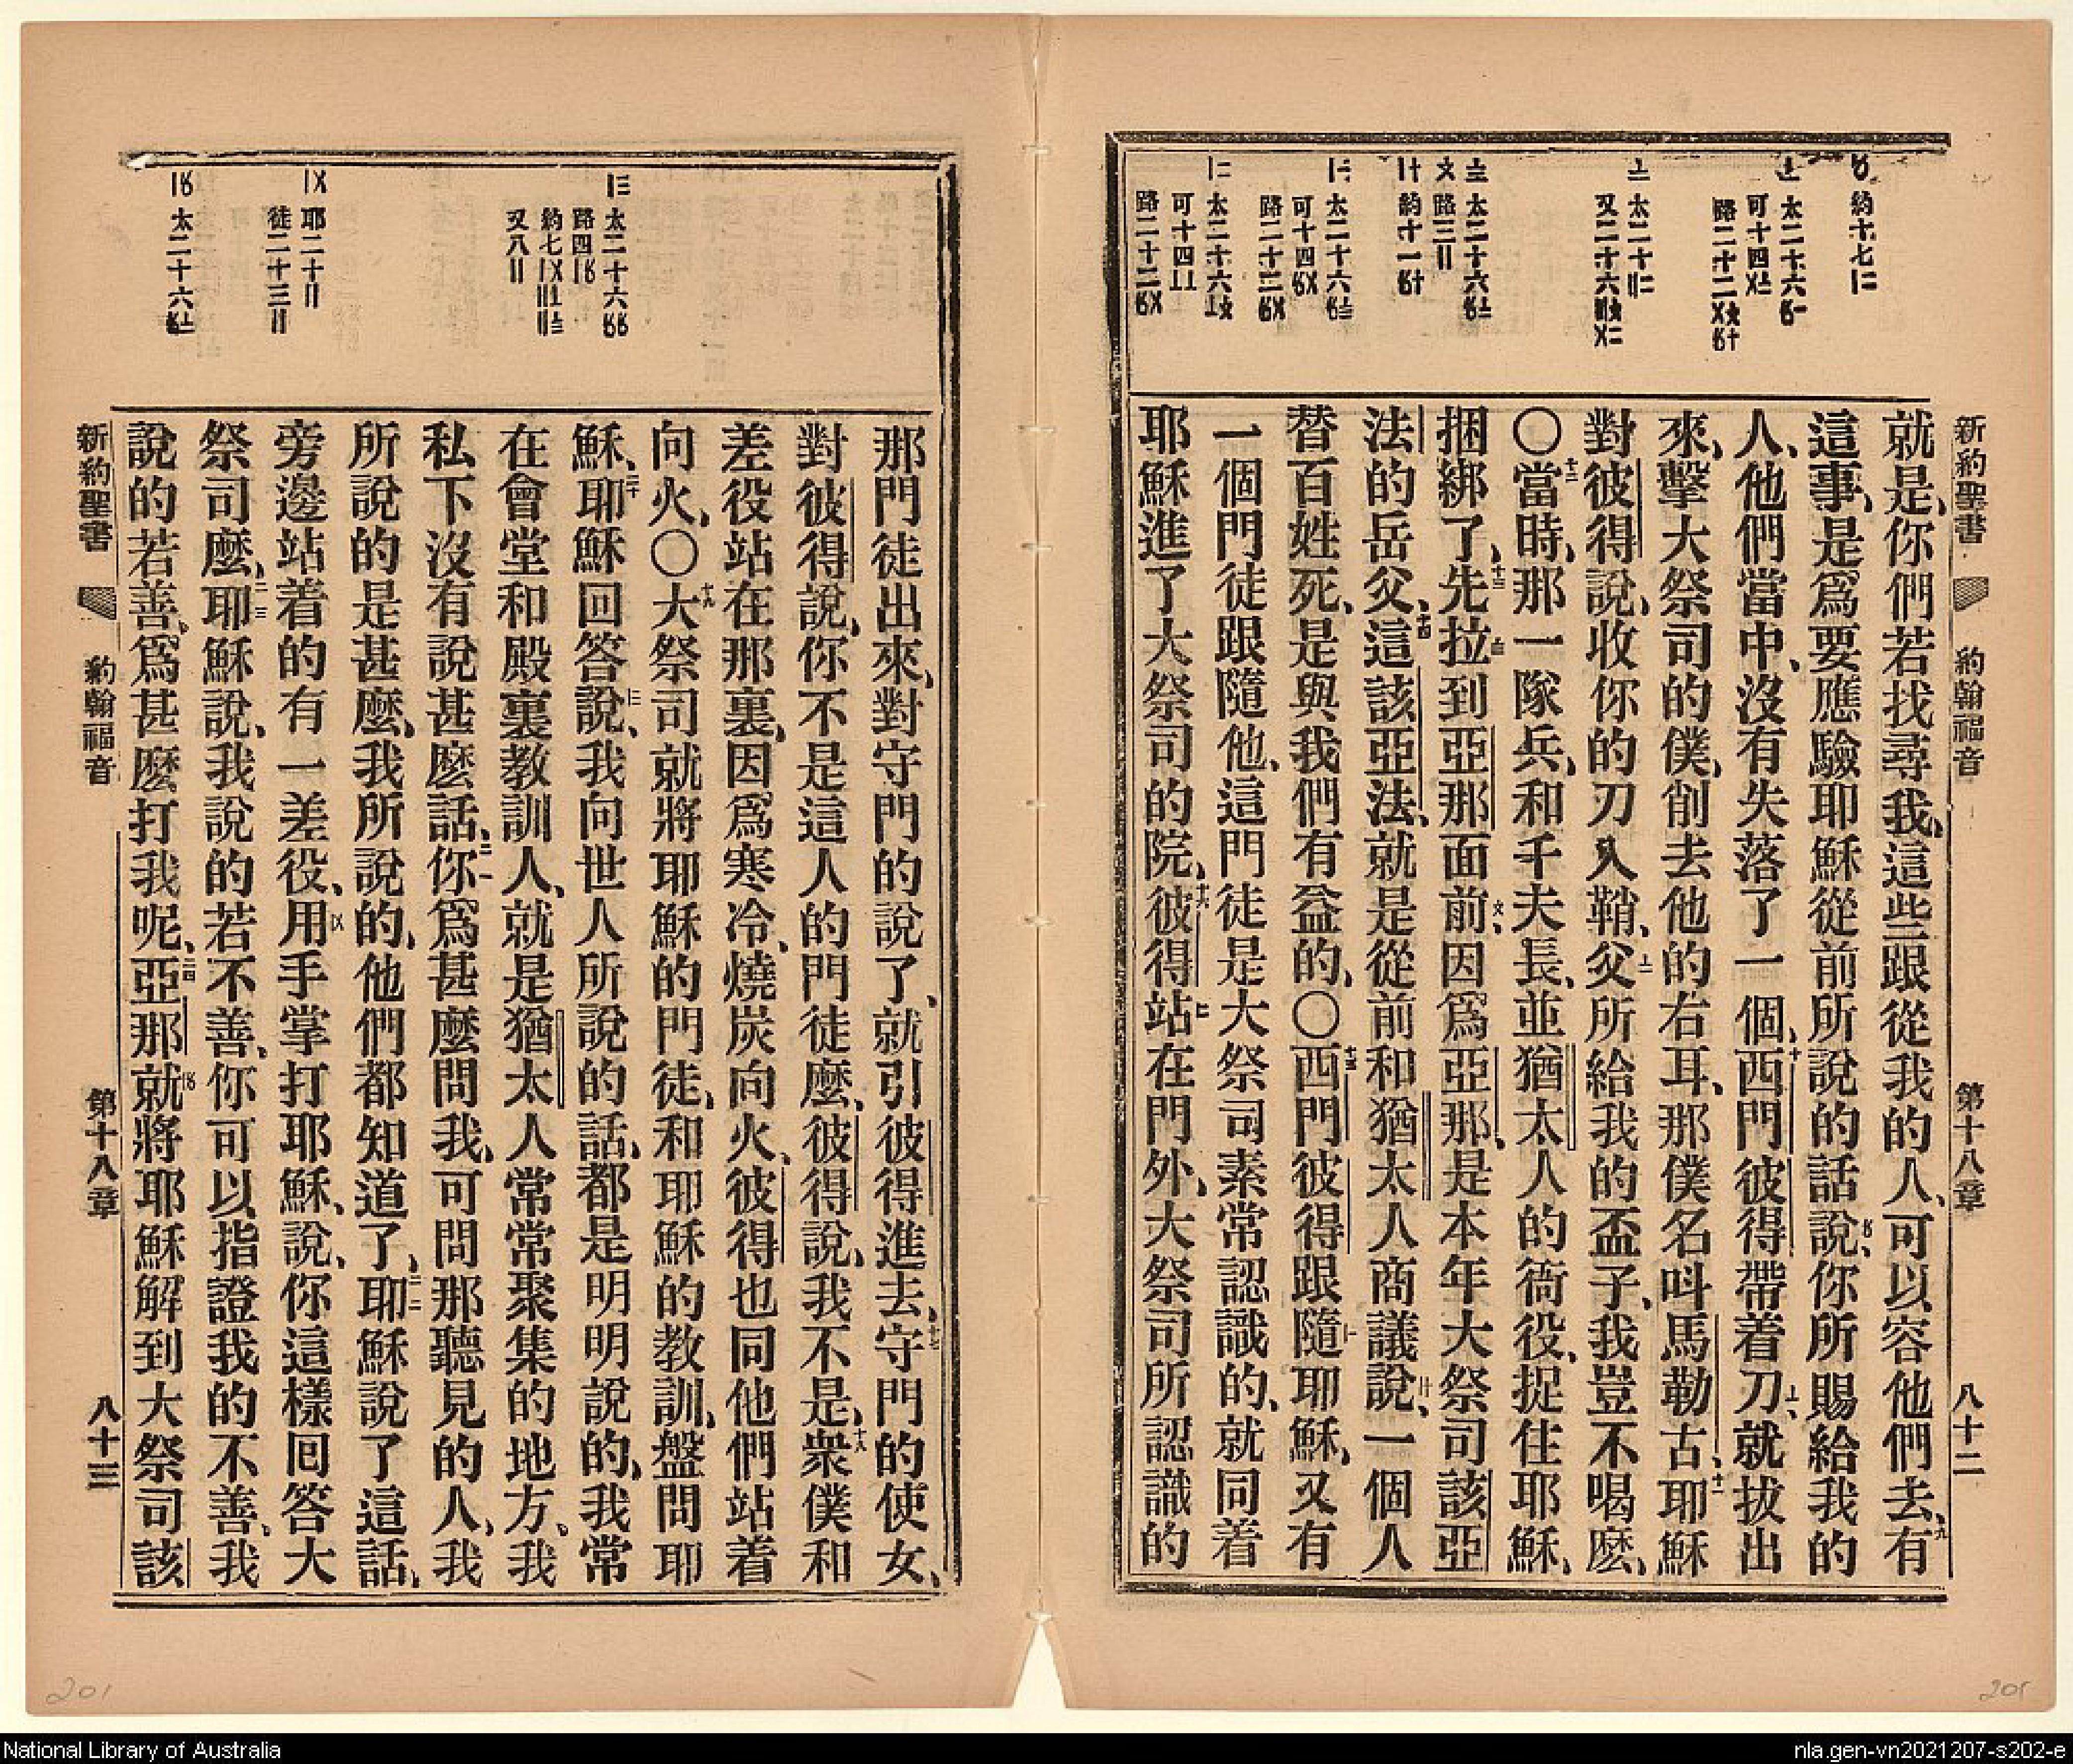 新約聖書 約翰福音 第十八章 八十二
約十七
太二十六
可十四
路二十二
太二十
又二十六
太二十六
路三
約十一
太二十六
可十四
路二十二
太二十六
可十四
路二十二
就是、你們若找尋我、這些跟從我的人、可以容他們去、九有
這事、是爲要應驗耶穌從前所說的話說、你所賜給我的
人、他們當中、沒有失落了一個、十西門彼得帶着刀、就拔出
來、擊大祭司的僕、削去他的右耳、那僕名呌馬勒古、十一耶穌
對彼得說、收你的刀入鞘、父所給我的盃子、我豈不喝麽、
〇十二當時、那一隊兵、和千夫長、並猶太人的衙役、捉住耶穌、
捆綁了、十三先拉到亞那面前、因爲亞那、是本年大祭司該亞
法的岳父、十四這該亞法、就是從前和猶太人商議說、一個人
替百姓死、是與我們有益的、〇十五西門彼得跟隨耶穌、又有
一個門徒跟隨他、這門徒是大祭司素常認識的、就同着
耶穌進了大祭司的院、十六彼得站在門外、大祭司所認識的
太二十六
路四
約七
又八
耶二十
徒二十三
太二十六
那門徒出來、對守門的說了、就引彼得進去、十七守門的使女、
對彼得說、你不是這人的門徒麽、彼得說、我不是、十八衆僕和
差役站在那裏、因爲寒冷、燒炭向火、彼得也同他們站着
向火、〇十九大祭司就將耶穌的門徒、和耶穌的教訓、盤問耶
穌、二十耶穌回答說、我向世人所說的話、都是明明說的、我常
在會堂和殿裏教訓人、就是猶太人常常聚集的地方、我
私下沒有說甚麽話、二一你爲甚麽問我、可問那聽見的人、我
所說的是甚麽、我所說的、他們都知道了、二二耶穌說了這話、
旁邊站着的有一差役、用手掌打耶穌、說、你這樣囘答大
祭司麽、二三耶穌說、我說的若不善、你可以指證我的不善、我
說的若善、爲甚麽打我呢、二四亞那就將耶穌解到大祭司該
新約聖書 約翰福音 第十八章 八十三
201
201
National Library of Australia
nla.gen-vn2021207-s202-e